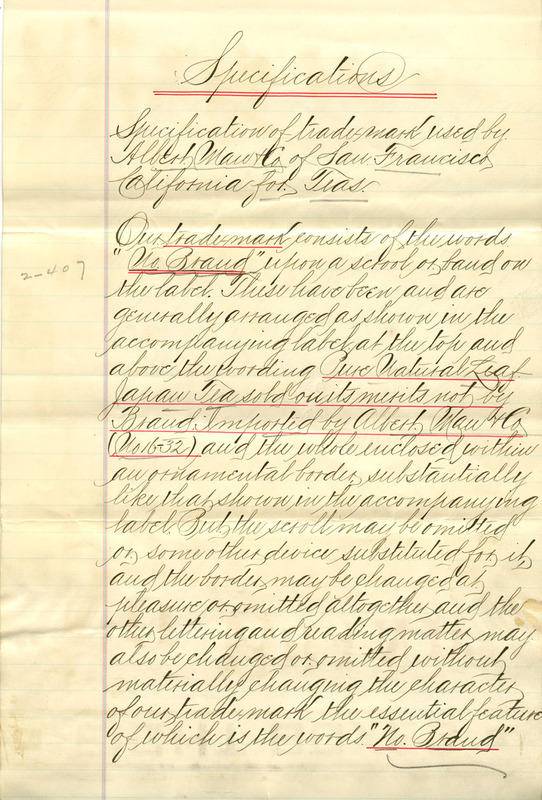 Specifications
Specification of trade-mark used by
Albert Mau & Co of San Francisco,
California for Teas.
Our trade-mark consists of the words
"No. Brand" upon a scroll or band on
the label. These have been and are
generally arranged as shown in the
accompanying label, at the top and
above the wording Pure Natural Leaf
Japan Tea sold on its merits not by
Brand. Imported by Albert Mau & Co
(No. 16-32) and the whole enclosed within
an ornamental border, substantially
like that shown in the accompanying
label. But the scroll may be omitted
or some other device substituted for it,
and the border may be changed at
pleasure, or omitted altogether, and the
other lettering and reading matter may
also be changed or omitted without
materially changing the character
of our trade-mark the essential feature
of which is the words "No. Brand"
2-407